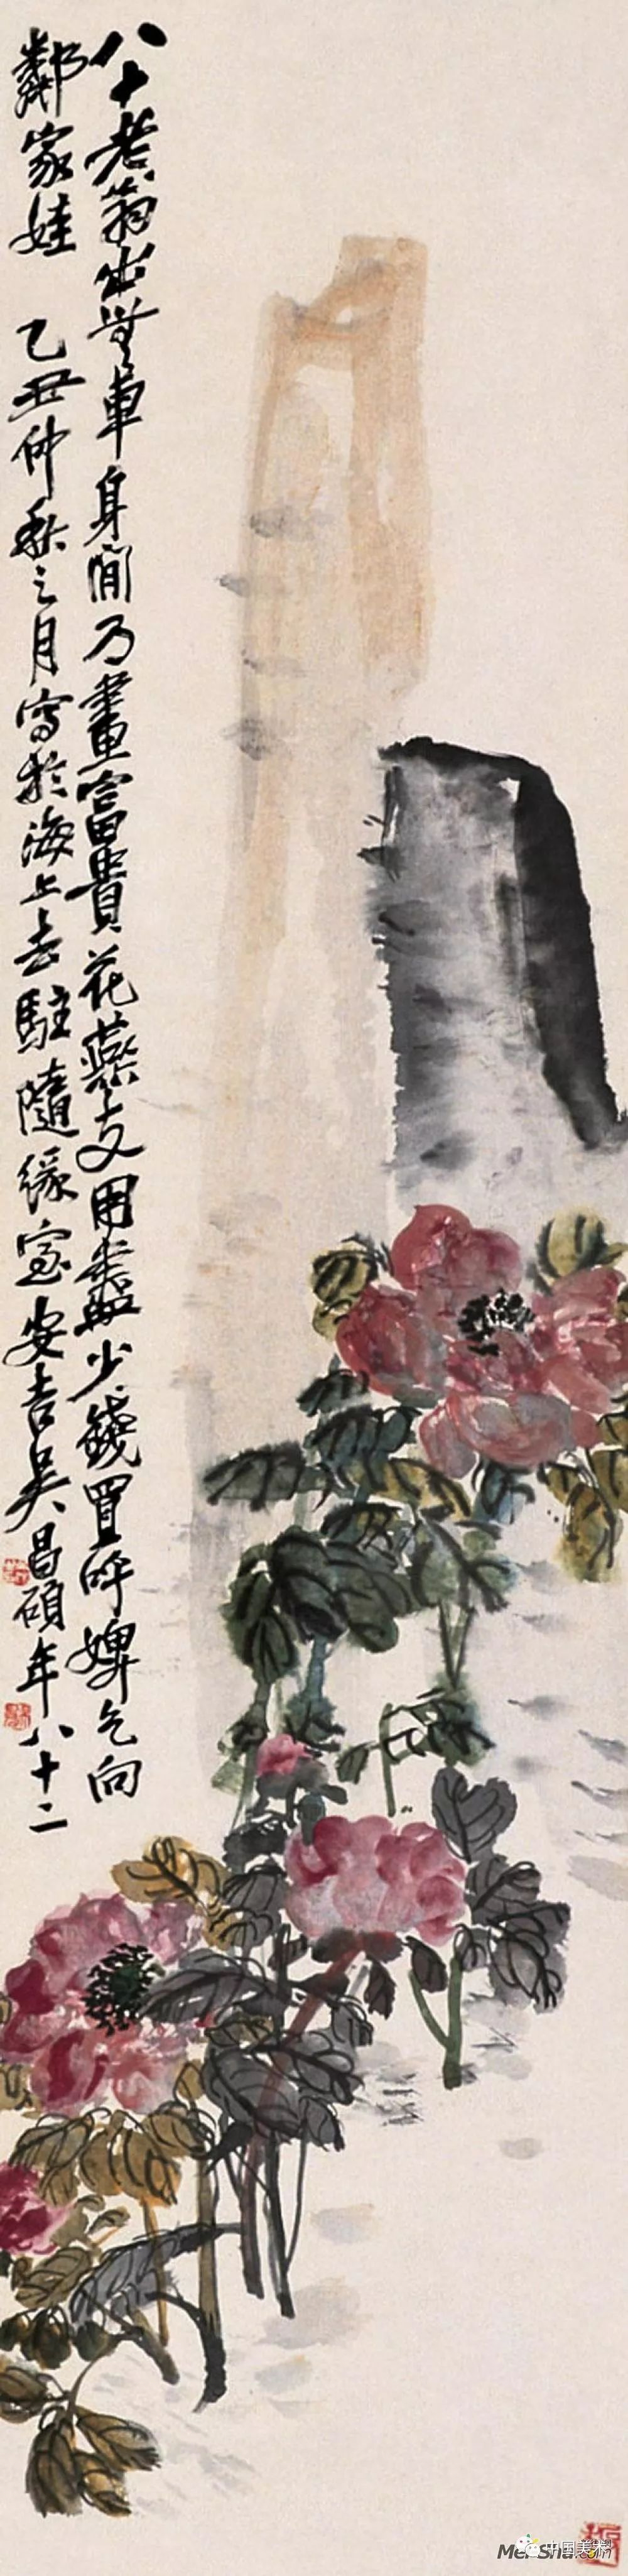 八十老翁出無車身閒乃畫富貴花燕支用盡少錢買呼婢乞向
鄰家娃 乙丑仲秋之月寫於海上去駐隨緣室安吉吳昌碩年八十二
中国美术